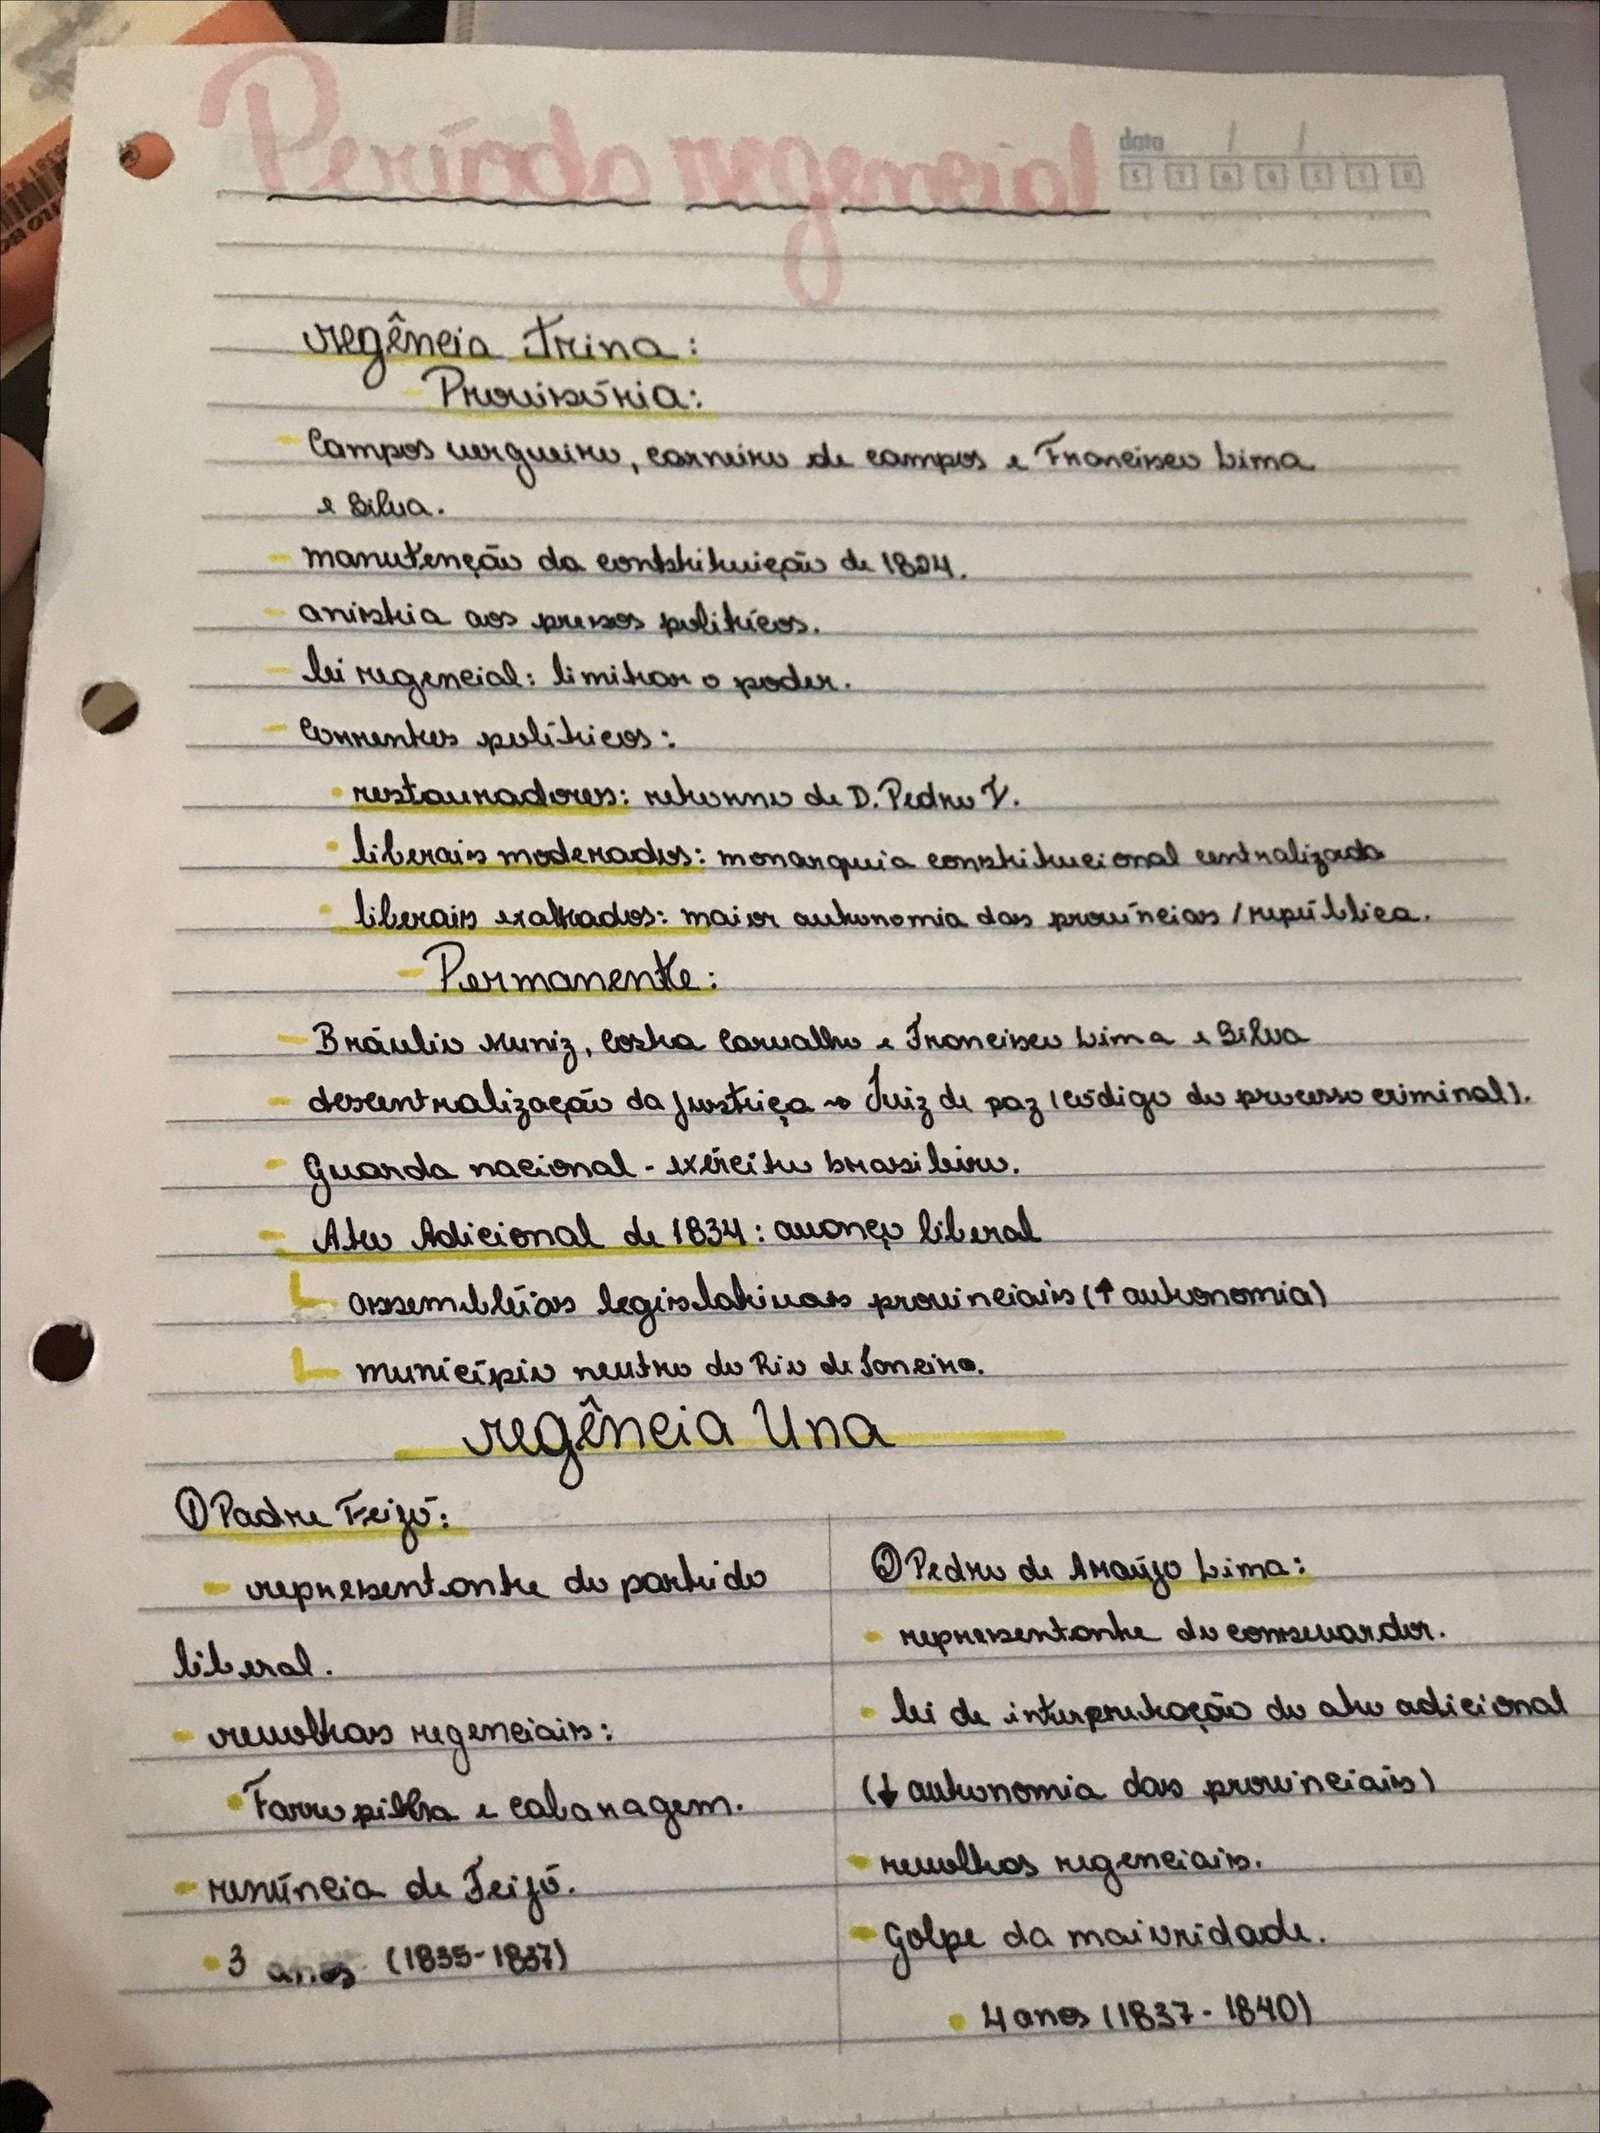 Período regencial
data
S T Q Q S S D
regência Trina:
- Provisória:
- Campos vergueiro, carneiro de campos e Francisco Lima
e Silva.
- manutenção da constituição de 1824.
- anistia aos presos políticos.
- lei regencial: limitar o poder.
- Correntes políticas:
• restauradores: retorno de D. Pedro I.
• liberais moderados: monarquia constitucional centralizada
• liberais exaltados: maior autonomia das províncias / república.
- Permanente:
- Bráulio Muniz, Costa Carvalho e Francisco Lima e Silva
- descentralização da justiça → Juiz de paz (código do processo criminal).
- Guarda nacional - exército brasileiro.
- Ato Adicional de 1834: avanço liberal
assembléias legislativas provinciais (↑ autonomia)
município neutro do Rio de Janeiro.
regência Una
① Padre Feijó:
- representante do partido
liberal.
- revoltas regenciais:
• Farroupilha e cabanagem.
- renúncia de Feijó.
• 3 anos (1835-1837)
② Pedro de Araújo Lima:
• representante do conservardor.
• lei de interpretação do ato adicional
(↓ autonomia das provinciais)
• revoltas regenciais.
• Golpe da maioridade.
• 4 anos (1837 - 1840)